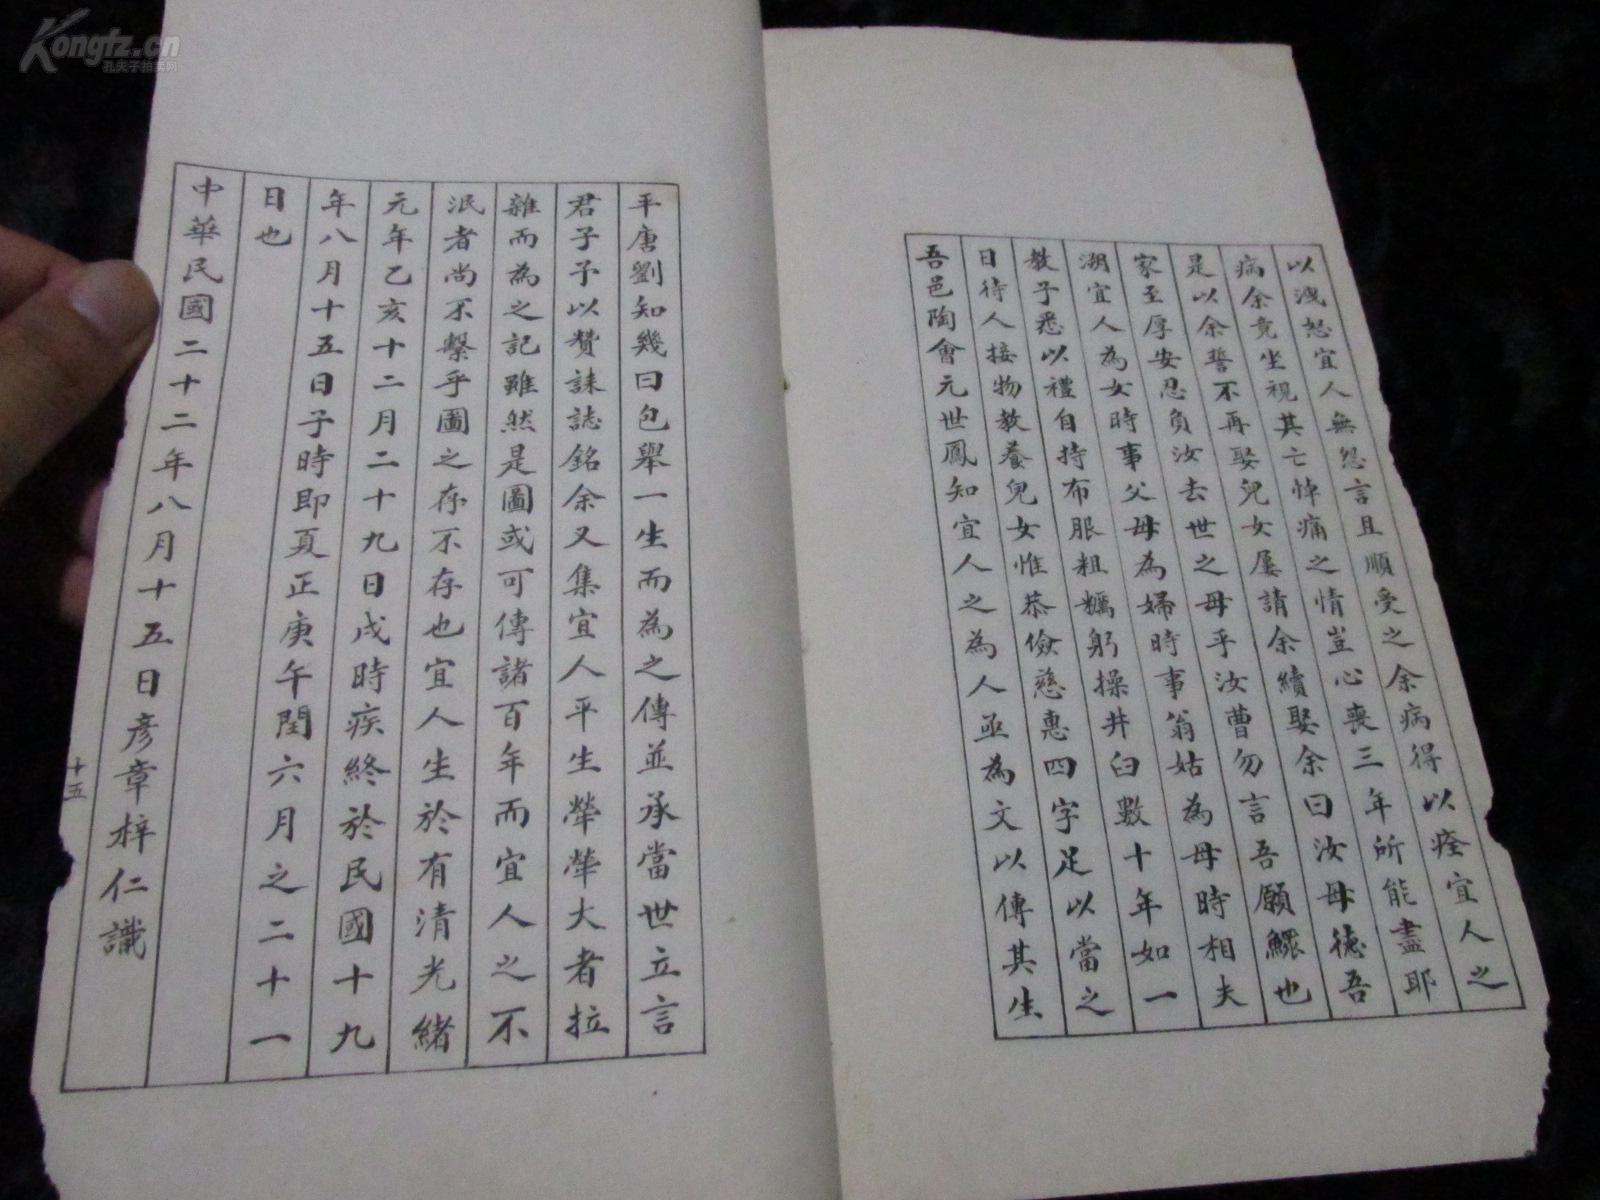 以洩怒宜人無怨言且順受之余病得以痊宜人之
病余竟坐視其亡悼痛之情豈心喪三年所能盡耶
是以余誓不再娶兒女屢請余續娶余曰汝母德吾
家至厚安忍負汝去世之母乎汝曹勿言吾願鰥也
溯宜人為女時事父母為婦時事翁姑為母時相夫
教子悉以禮自持布服粗糲躬操井臼數十年如一
日待人接物教養兒女惟恭儉慈惠四字足以當之
吾邑陶會元世鳳知宜人之為人亟為文以傳其生
平唐劉知幾曰包舉一生而為之傳並承當世立言
君子予以贊誄誌銘余又集宜人平生犖犖大者拉
雜而為之記雖然是圖或可傳諸百年而宜人之不
泯者尚不繫乎圖之存不存也宜人生於有清光緒
元年乙亥十二月二十九日戌時疾終於民國十九
年八月十五日子時即夏正庚午閏六月之二十一
日也
中華民國二十二年八月十五日彥章梓仁識
十五
Kongfz.cn
孔夫子拍卖网